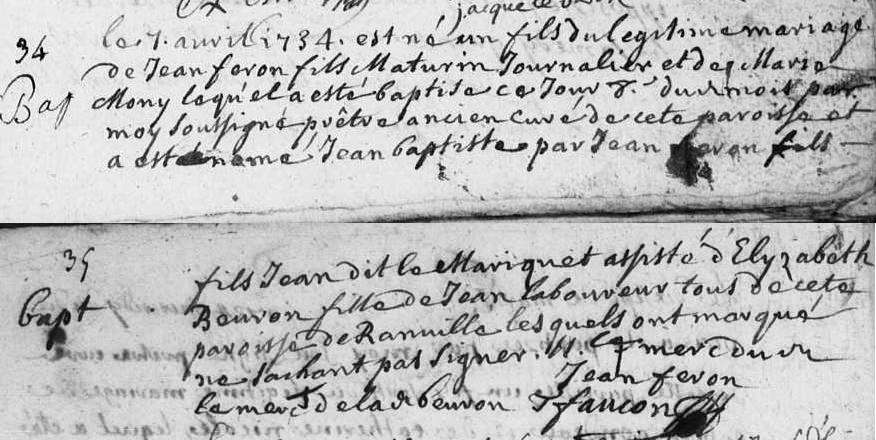 jacque
34
le 7. avril 1734. est né un fils du legitime mariage
de Jean feron fils Maturin Journalier et de Marie
Bap
Mony lequel a esté baptise ce Jour 8.e du d mois par
moy soussigné prêtre ancien curé de cete paroisse et
a esté nomé Jean baptiste par Jean feron fils
35
fils Jean dit le Mariquet assisté d'Elyzabeth
bapt
Beuron fille de Jean laboureur tous de cete
paroisse de Ranville lesquels ont marqué
ne sachant pas signer. merc du d
Jean feron
le merc de lad beuron J faucon